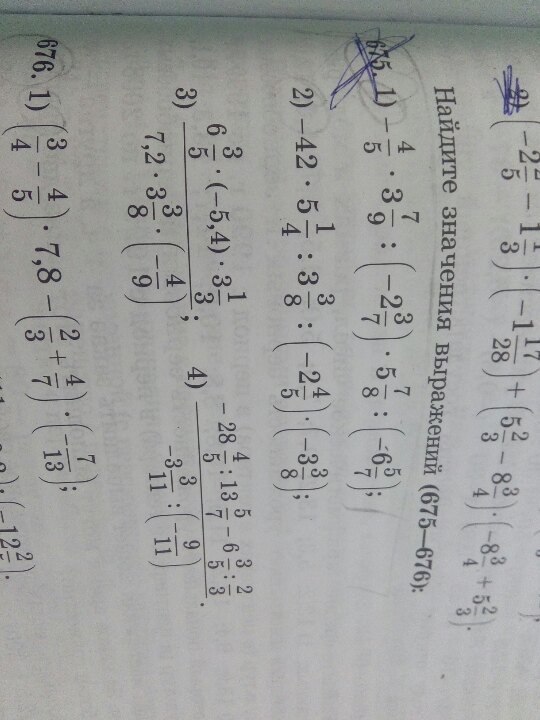 2) (-2 2/5 - 1 1/3) · (-1 17/28) + (5 2/3 - 8 3/4) · (-8 3/4 + 5 2/3).
Найдите значения выражений (675—676):
675. 1) -4/5 · 3 7/9 : (-2 3/7) · 5 7/8 : (-6 5/7);
2) -42 · 5 1/4 : 3 3/8 : (-2 4/5) · (-3 3/8);
3) (6 3/5 · (-5,4) · 3 1/3) / (7,2 · 3 3/8 · (-4/9));
4) (-28 4/5 : 13 5/7 - 6 3/5 : 2/3) / (-3 3/11 : (-9/11)).
676. 1) (3/4 - 4/5) · 7,8 - (2/3 + 4/7) · (-7/13);